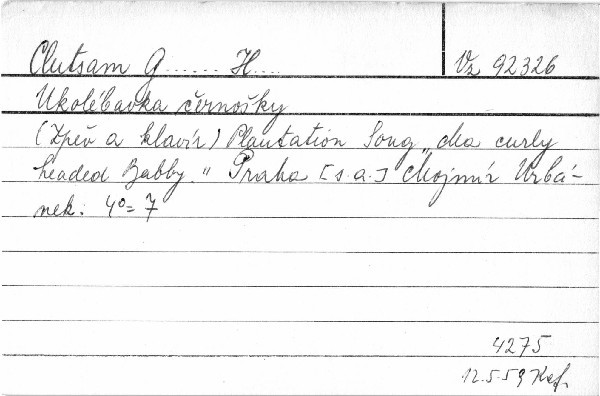 Clutsam G...... H.... Vz 92326
Ukolébavka černošky
(Zpěv a klavír) Plantation Song „Ma curly
headed Babby." Praha [s.a.] Mojmír Urbá-
nek. 4° = 7
4275
12.5.59 Kef.